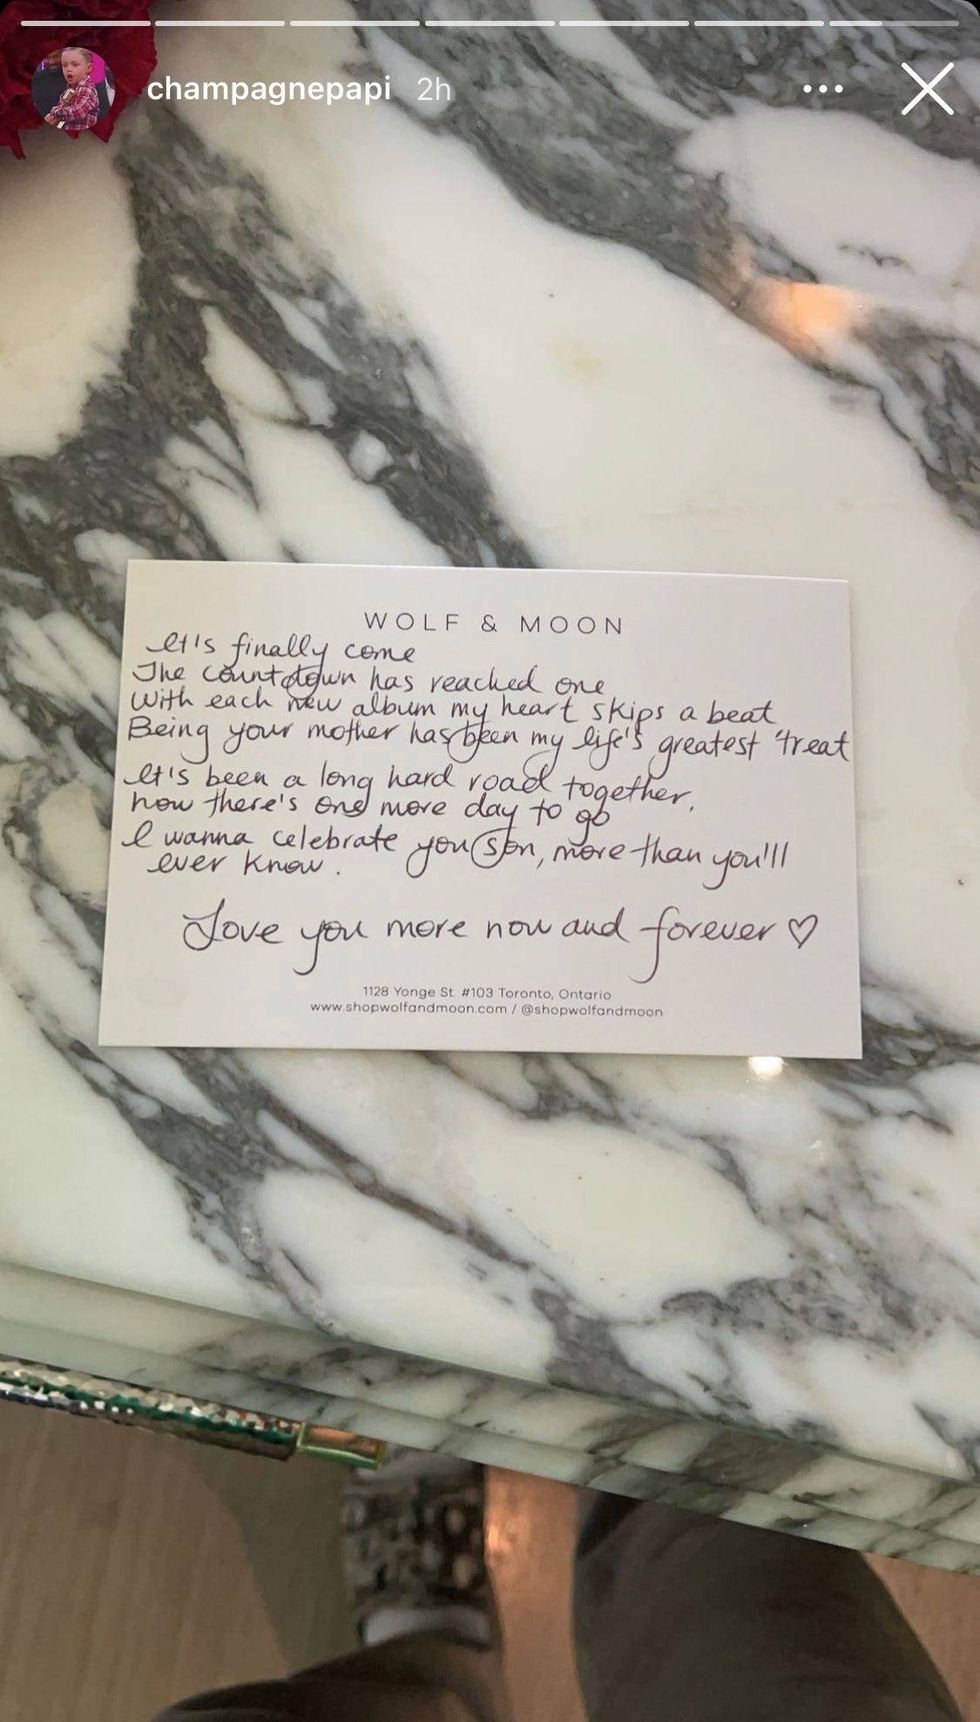 champagnepapi 2h
WOLF & MOON
It's finally come
The countdown has reached one
With each new album my heart skips a beat
Being your mother has been my life's greatest treat
It's been a long hard road together.
now there's one more day to go
I wanna celebrate you son, more than you'll
ever know.
Love you more now and forever ♡
1128 Yonge St. #103 Toronto, Ontario
www.shopwolfandmoon.com / @shopwolfandmoon